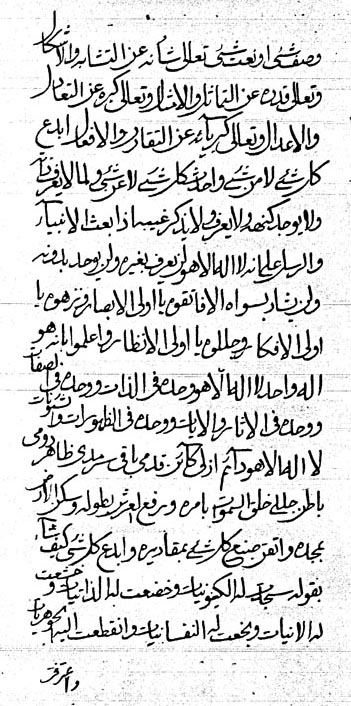 وصف شیء او نعت شیء تعالی شانه عن التشابه والاشکال
وتعالی قدره عن التماثل والامثال وتعالی کبره عن التعادل
والاعدال وتعالی کبریآئه عن التقادر والافعال ابدع
کل شیء لا من شیء واحدث کل شیء لا عن شیء ولما لا یعرف ذاته
ولا یوجد کنهه ولا یعرف ولا یذکر غیبه اذا بعث الانبیآء
والرسل علی انه لا اله الا هو لن یعرف بغیره ولن یوحد بدونه
ولن یشار بسواه الا فاتقوه یا اولی الابصار ونزهوه یا
اولی الافکار وجللوه یا اولی الانظار واعلموا بانه هو
اله واحد لا اله الا هو وحده فی الذات ووحده فی الصفات
ووحده فی الاثار والایات ووحده فی الظهورات والشئونات
لا اله الا هو دآئم ازلی کائن قدمی باقی سرمدی ظاهر دومی
باطن جلیل خلق السموات بامره ورفع العرش بطوله وسکن الارض
بمجده واتقن صنع کل شیء بمقادیره وابدع کل شیء کیف شآء
بقوله سجدت له الکینونیات وخضعت له الذاتیات وخشعت
له الانیات وبخعت له النفسانیات وانقطعت الیه الجوهریات
واعترفت